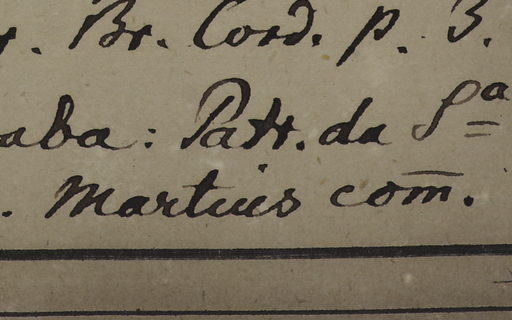 r. Br. Cord. p. 3.
aba: Patr. da Sª
. Martius com̅.